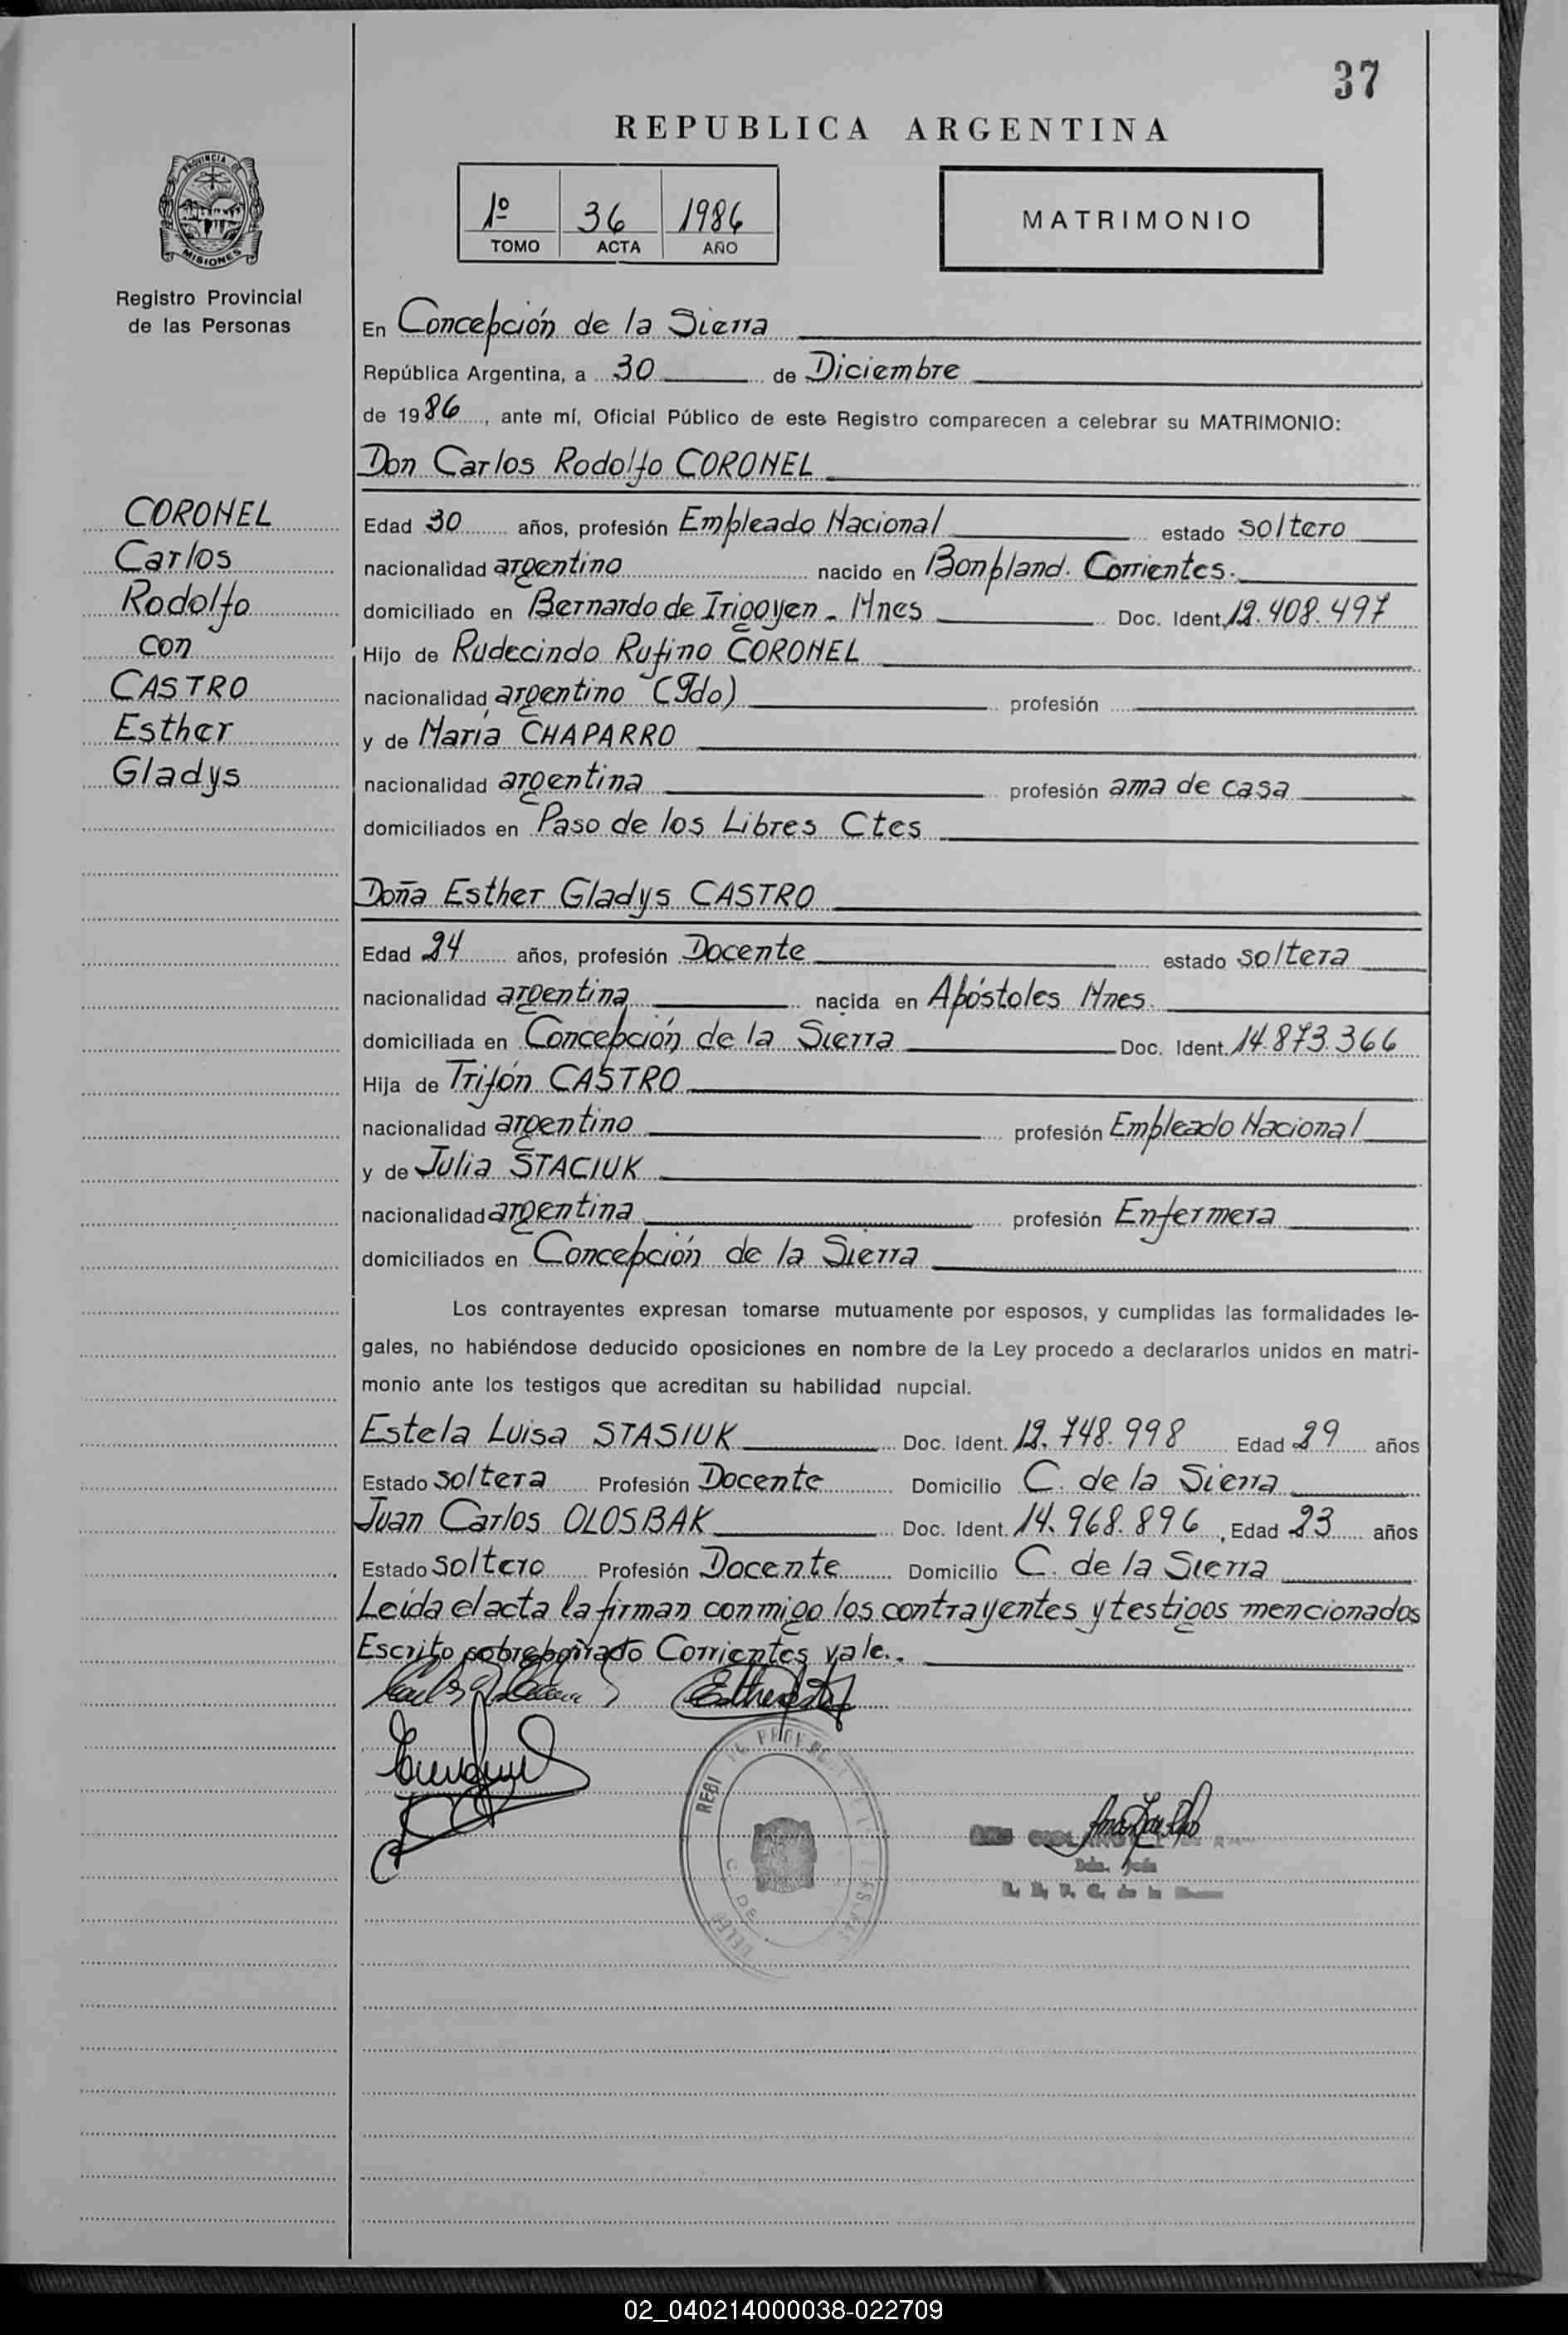 37
REPUBLICA ARGENTINA
PROVINCIA DE
MISIONES
Registro Provincial
de las Personas
1º 36 1986
TOMO ACTA AÑO
MATRIMONIO
En Concepción de la Sierra
República Argentina, a 30 de Diciembre
de 1986, ante mí, Oficial Público de este Registro comparecen a celebrar su MATRIMONIO:
Don Carlos Rodolfo CORONEL
CORONEL
Carlos
Rodolfo
con
CASTRO
Esther
Gladys
Edad 30 años, profesión Empleado Nacional estado soltero
nacionalidad argentino nacido en Bonpland. Corrientes.
domiciliado en Bernardo de Irigoyen - Mnes Doc. Ident. 12.408.497
Hijo de Rudecindo Rufino CORONEL
nacionalidad argentino (Fdo) profesión
y de María CHAPARRO
nacionalidad argentina profesión ama de casa
domiciliados en Paso de los Libres Ctes
Doña Esther Gladys CASTRO
Edad 24 años, profesión Docente estado soltera
nacionalidad argentina nacida en Apóstoles Mnes.
domiciliada en Concepción de la Sierra Doc. Ident. 14.873.366
Hija de Trifón CASTRO
nacionalidad argentino profesión Empleado Nacional
y de Julia STACIUK
nacionalidad argentina profesión Enfermera
domiciliados en Concepción de la Sierra
Los contrayentes expresan tomarse mutuamente por esposos, y cumplidas las formalidades le-
gales, no habiéndose deducido oposiciones en nombre de la Ley procedo a declararlos unidos en matri-
monio ante los testigos que acreditan su habilidad nupcial.
Estela Luisa STASIUK Doc. Ident. 12.748.998 Edad 29 años
Estado soltera Profesión Docente Domicilio C. de la Sierra
Juan Carlos OLOSBAK Doc. Ident. 14.968.896, Edad 23 años
Estado soltero Profesión Docente Domicilio C. de la Sierra
Leída el acta la firman conmigo los contrayentes y testigos mencionados
Escrito sobreborrado Corrientes vale.-
02_040214000038-022709